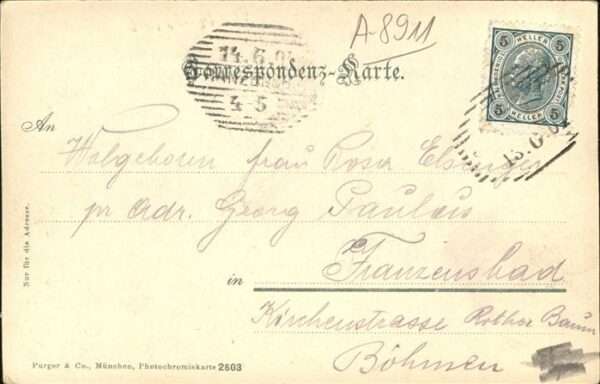 A-8911
14.6.0
4-5
Correspondenz-Karte.
5 HELLER 5
5 HELLER 5
13.6.04
An
Wolgeboren frau Rosa
pr Adr. Georg Paulus
in Franzensbad
Kirchenstrasse Rother Baum
Böhmen
Nur für die Adresse.
Purger & Co., München, Photochromiekarte 2603